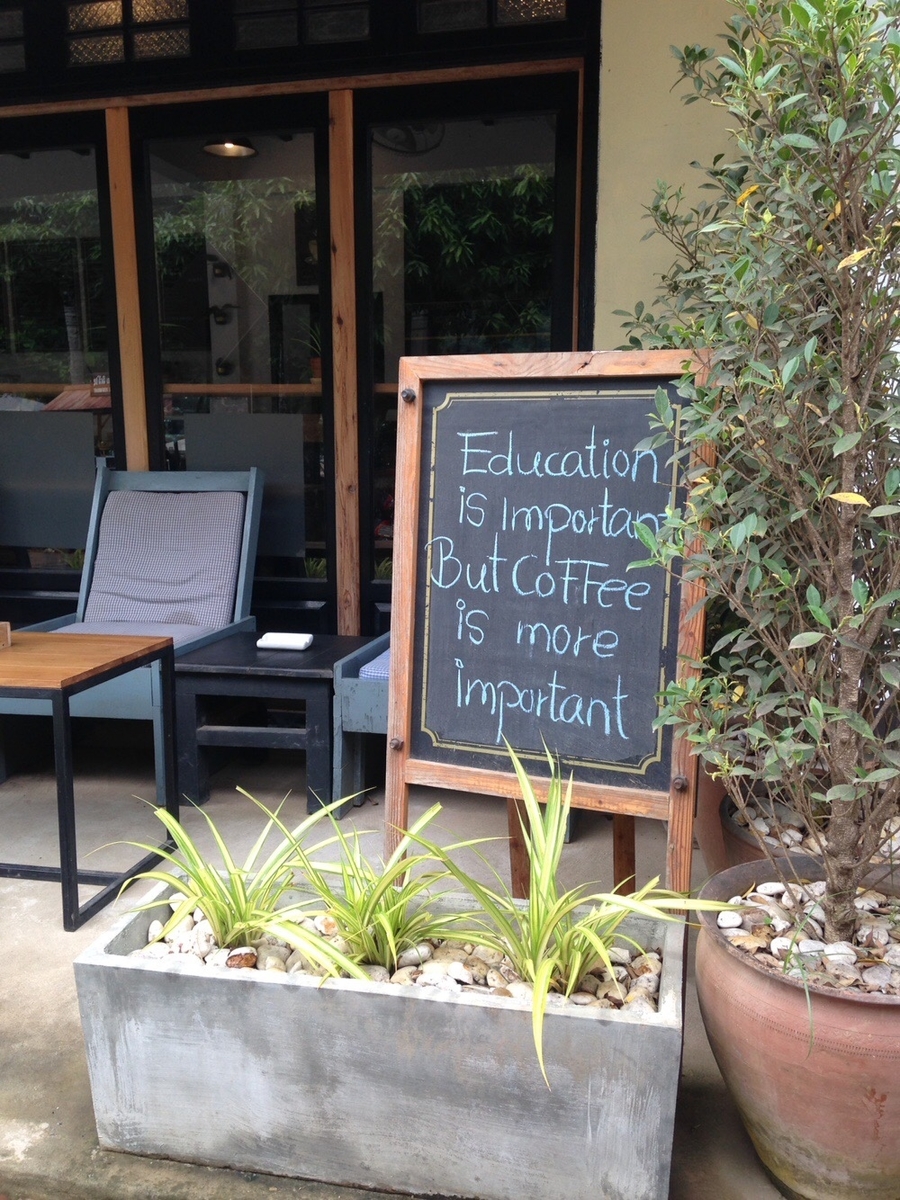 Education
is Important
But CoFFee
is more
important